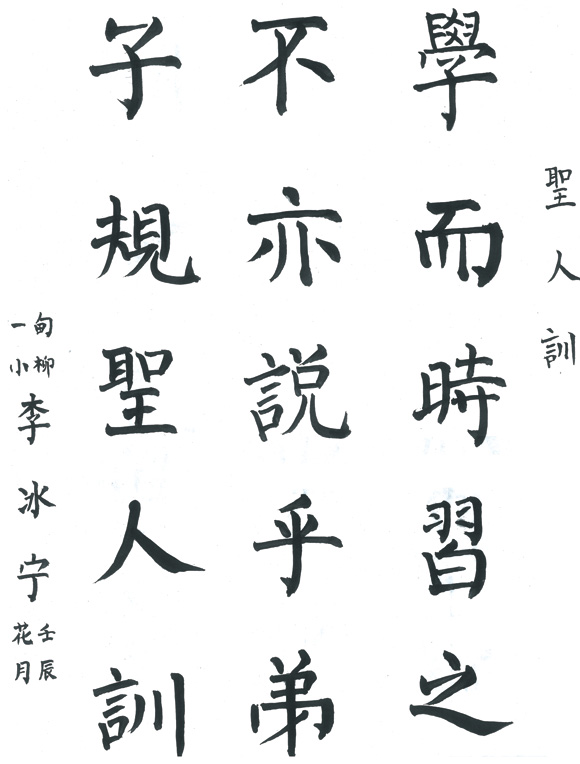 聖人訓
學而時習之
不亦説乎弟
子規聖人訓
甸柳
一小
李冰宁
壬辰
花月